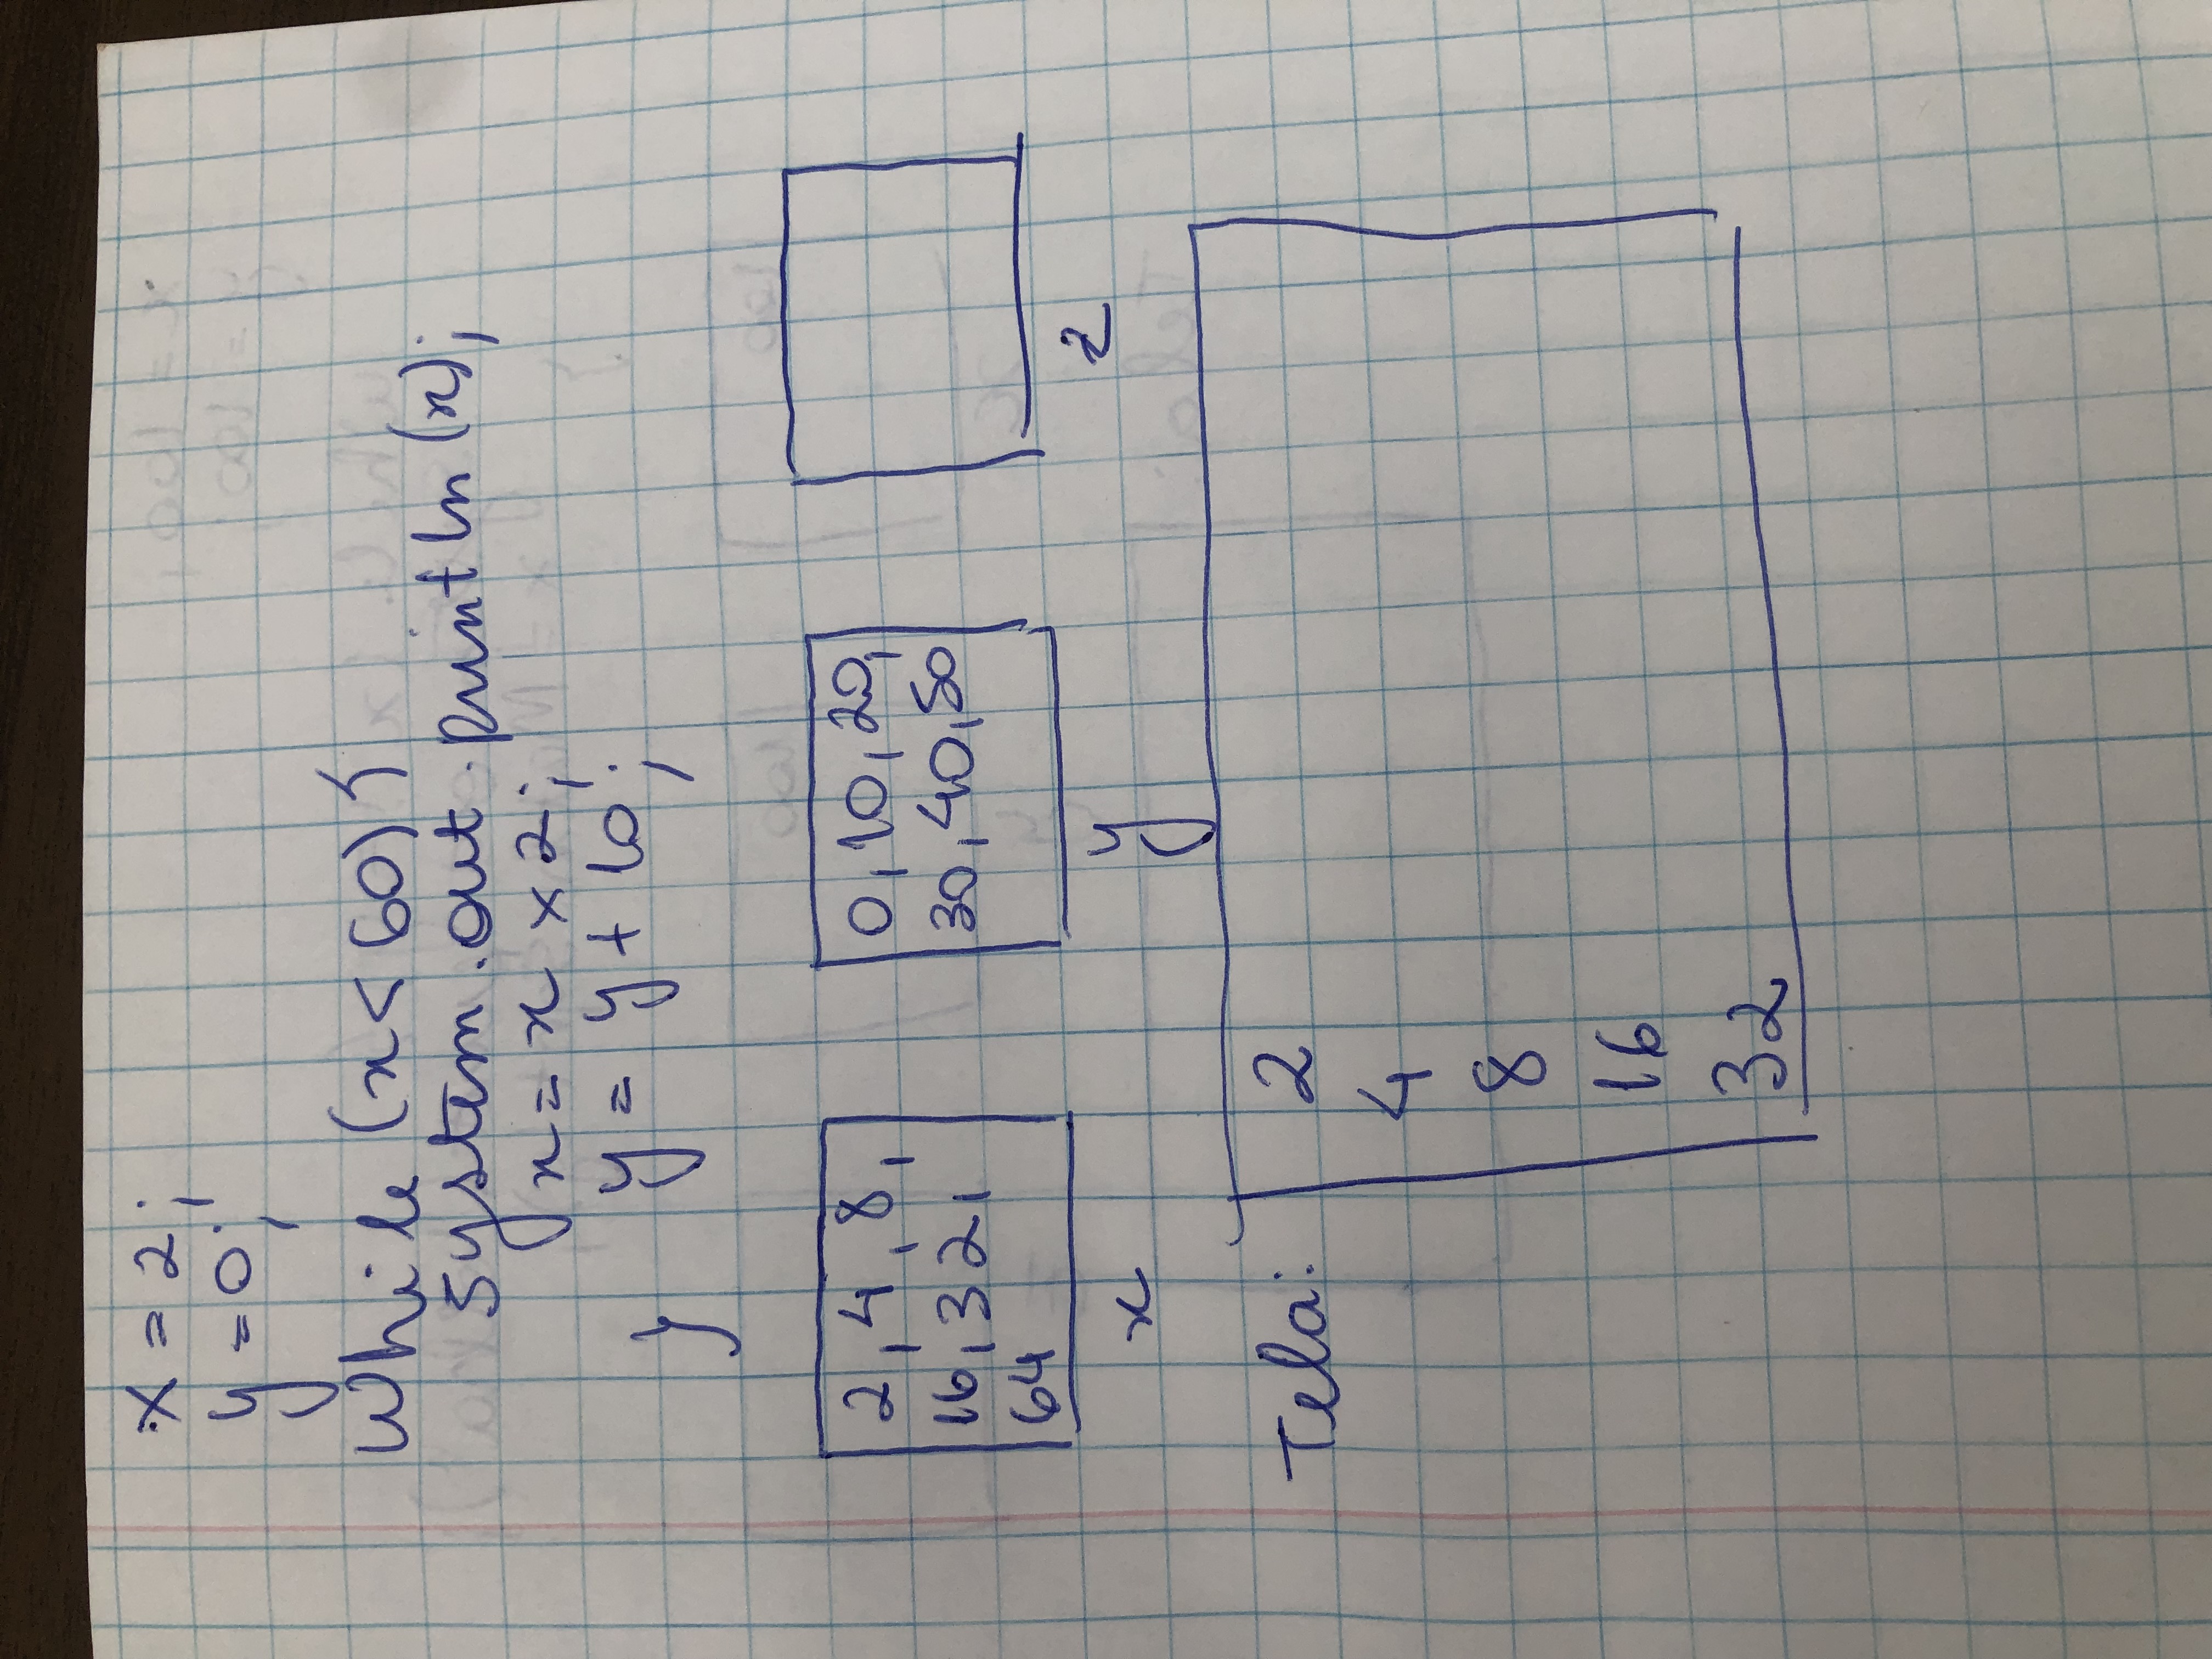 x = 2;
y = 0;
While (x < 60) {
System.out.println(x);
x = x × 2;
y = y + 10;
}
2, 4, 8,
16, 32,
64
x
0, 10, 20,
30, 40, 50
y
z
Tela:
2
4
8
16
32